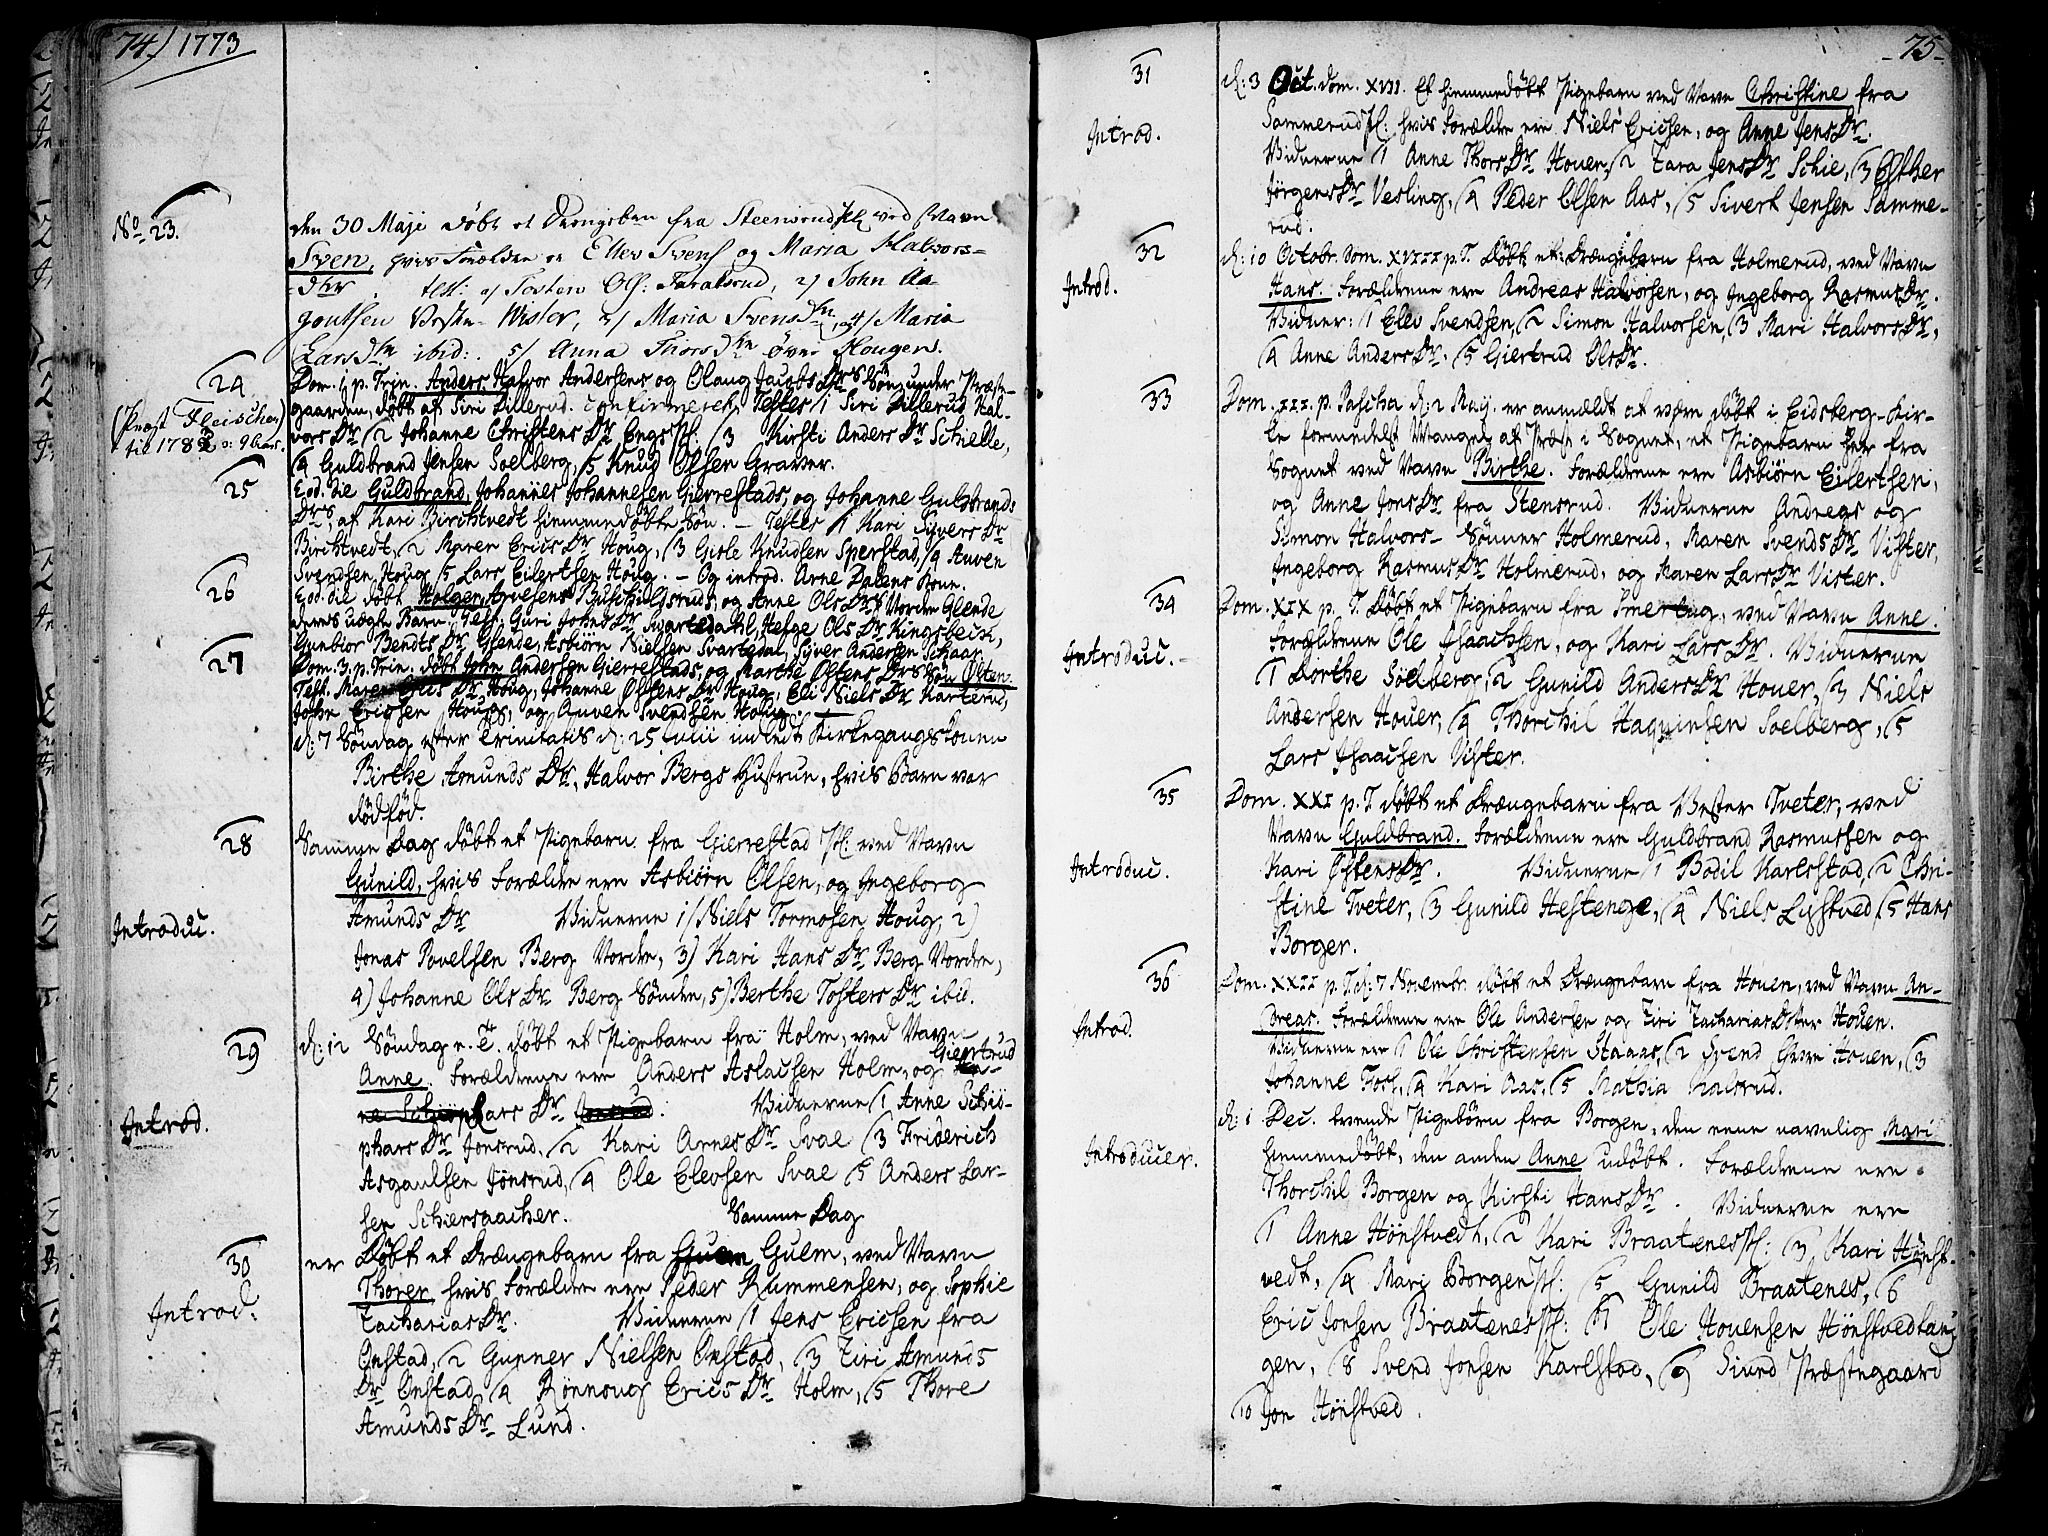 74.) 1773
No 23.
den 30 Maji döbt et Drengebarn fra Steensrud ved Navn
Sven, hvis Forældre er Ellev Svens og Maria Halvors-
dtr. test: 1/ Tosten Ols: Taralsrud, 2/ John Aa-
goutsen Vestre Wister, 3/ Maria Svensdtr, 4/ Maria
Larsdtr ibid: 5/ Anna Thorsdtr Øvre Hougen.
24
(Præst Fleischer
til 178
Dom. 1 p. Trin. Anders Halvor Andersens og Olaug Jacobs Drs Sön under Præste-
gaarden, döbt af Siri Lillerud. Confirmeret, Testes 1 Siri Lillerud Hal-
vors Dr (2 Johanne Christens Dr Engs (3 Kirsti Anders Dr Schielle,
(4 Guldbrand Jensen Soelberg, (5 Knud Olsen Graver.
25
Eod. die Guldbrand, Johannes Johannesen Gierrestads, og Johanne Guldbrands
Drs, af Kari Birchtvedt hiemmedöbte Sön. – Testes (1 Kari Sivers Dr
Birchtvedt, (2 Maren Erics Dr Houg, (3 Gisle Knudsen Sperstad, (4 Auven
Svendsen Houg (5 Lars Eilertsen Houg. – Og introd. Arne Dalens Kone.
26
Eod. die döbt Holger, Buschilsrud, og Anne Ols Drs Nordre Glende
deres uægte Barn. Test. Guri Johns Dr Svartedahl, Helge Ols Dr Kingsbech,
Gunbiör Bendts Dr Glende, Asbiörn Nielsen Svartedal, Siver Andersen Schaar.
27
Dom. 3. p. Trin. döbt John Andersen Gierrestads, og Marthe Östens Drs Sön Östen.
Test. Maren Erics Dr Houg, Johanne Östens Dr Houg, Eli Niels Dr Karterud,
John Ericsen Houg, og Auven Svendsen Houg.
d: 7 Söndag efter Trinitatis d: 25 Julii indledt Kirkegangskonen
Birthe Amunds Dr, Halvor Bergs Hustrue, hvis Barn var
dödföd.
28
Samme Dag döbt et Pigebarn fra Gierrestad Pl: ved Navn
Gunild, hvis Forældre ere Asbiörn Olsen, og Ingeborg
Introduc.
Amunds Dr Vidnerne 1/ Niels Tormosen Houg, 2)
Jonas Povelsen Berg Nordre, 3) Kari Hans Dr Berg Nordre,
4) Johanne Ols Dr Berg Söndre, 5) Berthe Tosters Dr ibid.
29
d: 12 Söndag e. T. döbt et Pigebarn fra Holm, ved Navn
Giertrud
Anne. Forældrene ere Anders Aslausen Holm, og
Introd.
Lars Dr Vidnerne (1 Anne Schiö-
phars Dr Jonsrud, (2 Kari Arnes Dr Svae (3 Friderich
Asgaulsen Jönsrud, (4 Ole Elevsen Svae (5 Anders Lar-
sen Schiersaacher. Samme Dag
30
er döbt et Drængebarn fra Gulm, ved Navn
Thorer, hvis Forældre ere Peder Rummensen, og Sophie
Introd.
Zacharias Dr. Vidnerne (1 Jens Ericsen fra
Onstad, (2 Gunner Nielsen Onstad, (3 Ziri Amunds
Dr Onstad, (4 Rönnoug Erics Dr Holm, (5 Thore
Amunds Dr Lund.
-75-
31
d: 3 Oct. Dom. XVII. Et hiemmedöbt Pigebarn ved Navn Christine fra
Introd.
Sammerud Pl: hvis Forældre ere Niels Ericsen, og Anne Jens Dr.
Vidnerne (1 Anne Thors Dr Houer, (2 Zara Jens Dr Schie, (3 Esther
Jörgens Dr Vesling, (4 Peder Olsen Aas, (5 Sivert Jensen Samme-
rud.
32
d: 10 Octobr. Dom. XVIII p. T. döbt et Drængebarn fra Holmerud, ved Navn
Introd.
Hans. Forældrene ere Andreas Halvorsen, og Ingeborg Rasmus Dr.
Vidner: (1 Elev Svendsen, (2 Simon Halvorsen, (3 Mari Halvors Dr,
(4 Anne Anders Dr. (5 Giertrud Ols Dr.
33
Dom. III. p. Pascha d: 2 Maij. er anmældt at være döbt i Eidsberg-Kir-
ke formedelst Mangel af Præst i Sognet, et Pigebarn her fra
Sognet ved Navn Birthe. Forældrene ere Asbiörn Eilertsen,
og Anne Jons Dr fra Stensrud. Vidnerne Andreas og
Simon Halvors- Sönner Holmerud, Maren Svends Dr Vister,
Ingeborg Rasmus Dr Holmerud, og Karen Lars Dr Vister.
34
Dom. XIX p. T. döbt et Pigebarn fra Smertug, ved Navn Anne.
Introduc.
Forældrene Ole Isaachsen, og Kari Lars Dr. Vidnerne
(1 Dorthe Söelberg, (2 Gunild Anders Dr Houer, (3 Niels
Andersen Houer, (4 Thorchil Haqvinsen Soelberg, (5
Lars Isaachsen Vister.
35
Dom. XXI p. T. döbt et Drængebarn fra Vester Tveter, ved
Navn Guldbrand. Forældrene ere Guldbrand Rasmussen og
Introduc.
Kari Östens Dr. Vidnerne (1 Bodil Karlstad, (2 Chri-
stine Tveter, (3 Gunild Hestenge, (4 Niels Lystved, (5 Hans
Borger.
36
Dom. XXII p. T. d: 7 Novembr. döbt et Drængebarn fra Houen, ved Navn An-
Introd.
dreas. Forældrene ere Ole Andersen og Ziri Zacharias Dotter Houen.
Vidnerne ere (1 Ole Christensen Staaas, (2 Svend Houen, (3
Johanne Foss, (4 Kari Aas, (5 Mathia
d: 1 Dec. tvende Pigebörn fra Borgen, den eene navnlig Mari
Introducer.
hiemmedöbt, den anden Anne udöbt. Forældrene ere
Thorchil Borgen og Kirsti Hans Dr. Vidnerne ere
(1 Anne Hönstvedt, (2 Kari Braatenes Pl: (3, Kari Hönst-
vedt, (4 Mari Borgen Pl: (5 Gunild Braatenes, (6
Eric Jonsen Braatenes Pl: (7 Ole Houensen Hönstvedtang
gen, (8 Svend Jonsen Karlstad, (9 Siurd Præstegaard
(10 Jon Hönstved.